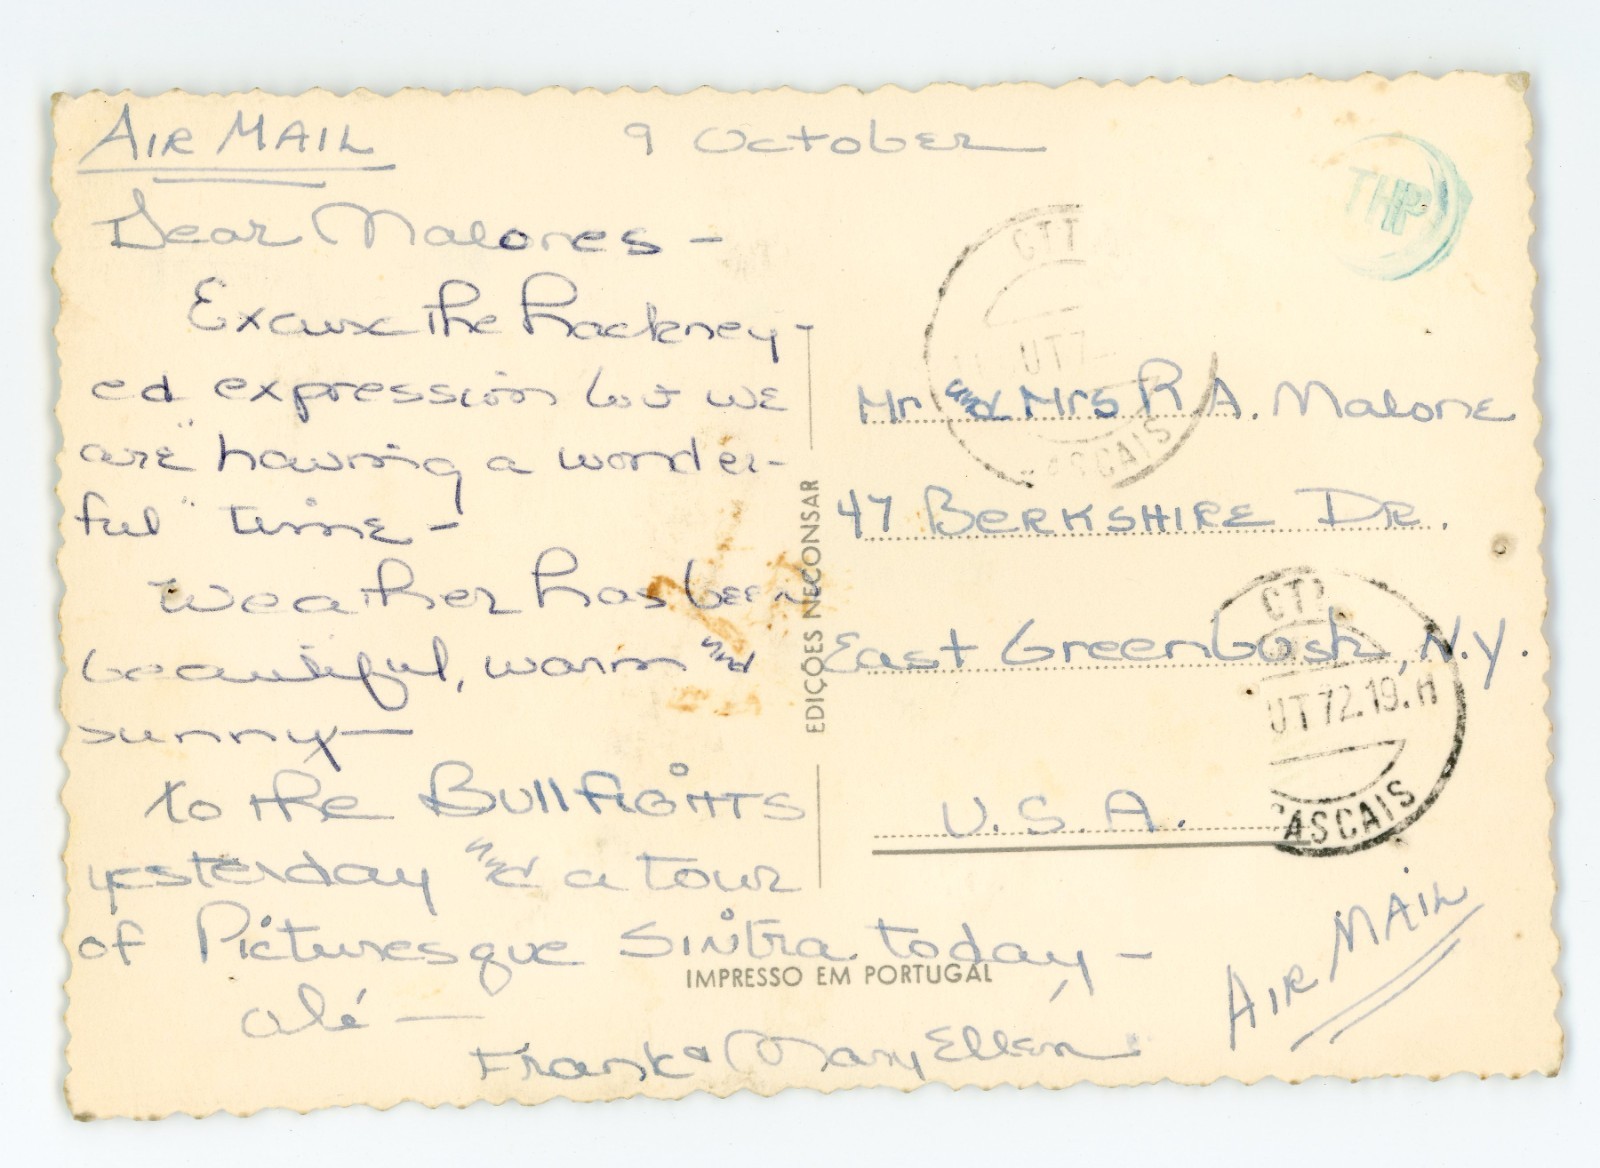 AIR MAIL
9 October
Dear Malones -
Excuse the hackney-
ed expression but we
are "having a wonder-
ful" time -
Weather has been
beautiful, warm and
sunny -
To the BullfiGHTS
yesterday and a tour
of Picturesque Sintra today -
Olé -
Frank & Mary Ellen
THP
CTT
UT 7
ASCAIS
Mr and Mrs R A. Malone
47 BERKSHIRE DR.
East Greenbush, N.Y.
U.S.A.
CTT
UT 72.19.H
ASCAIS
AIR MAIL
EDIÇÕES NECONSAR
IMPRESSO EM PORTUGAL